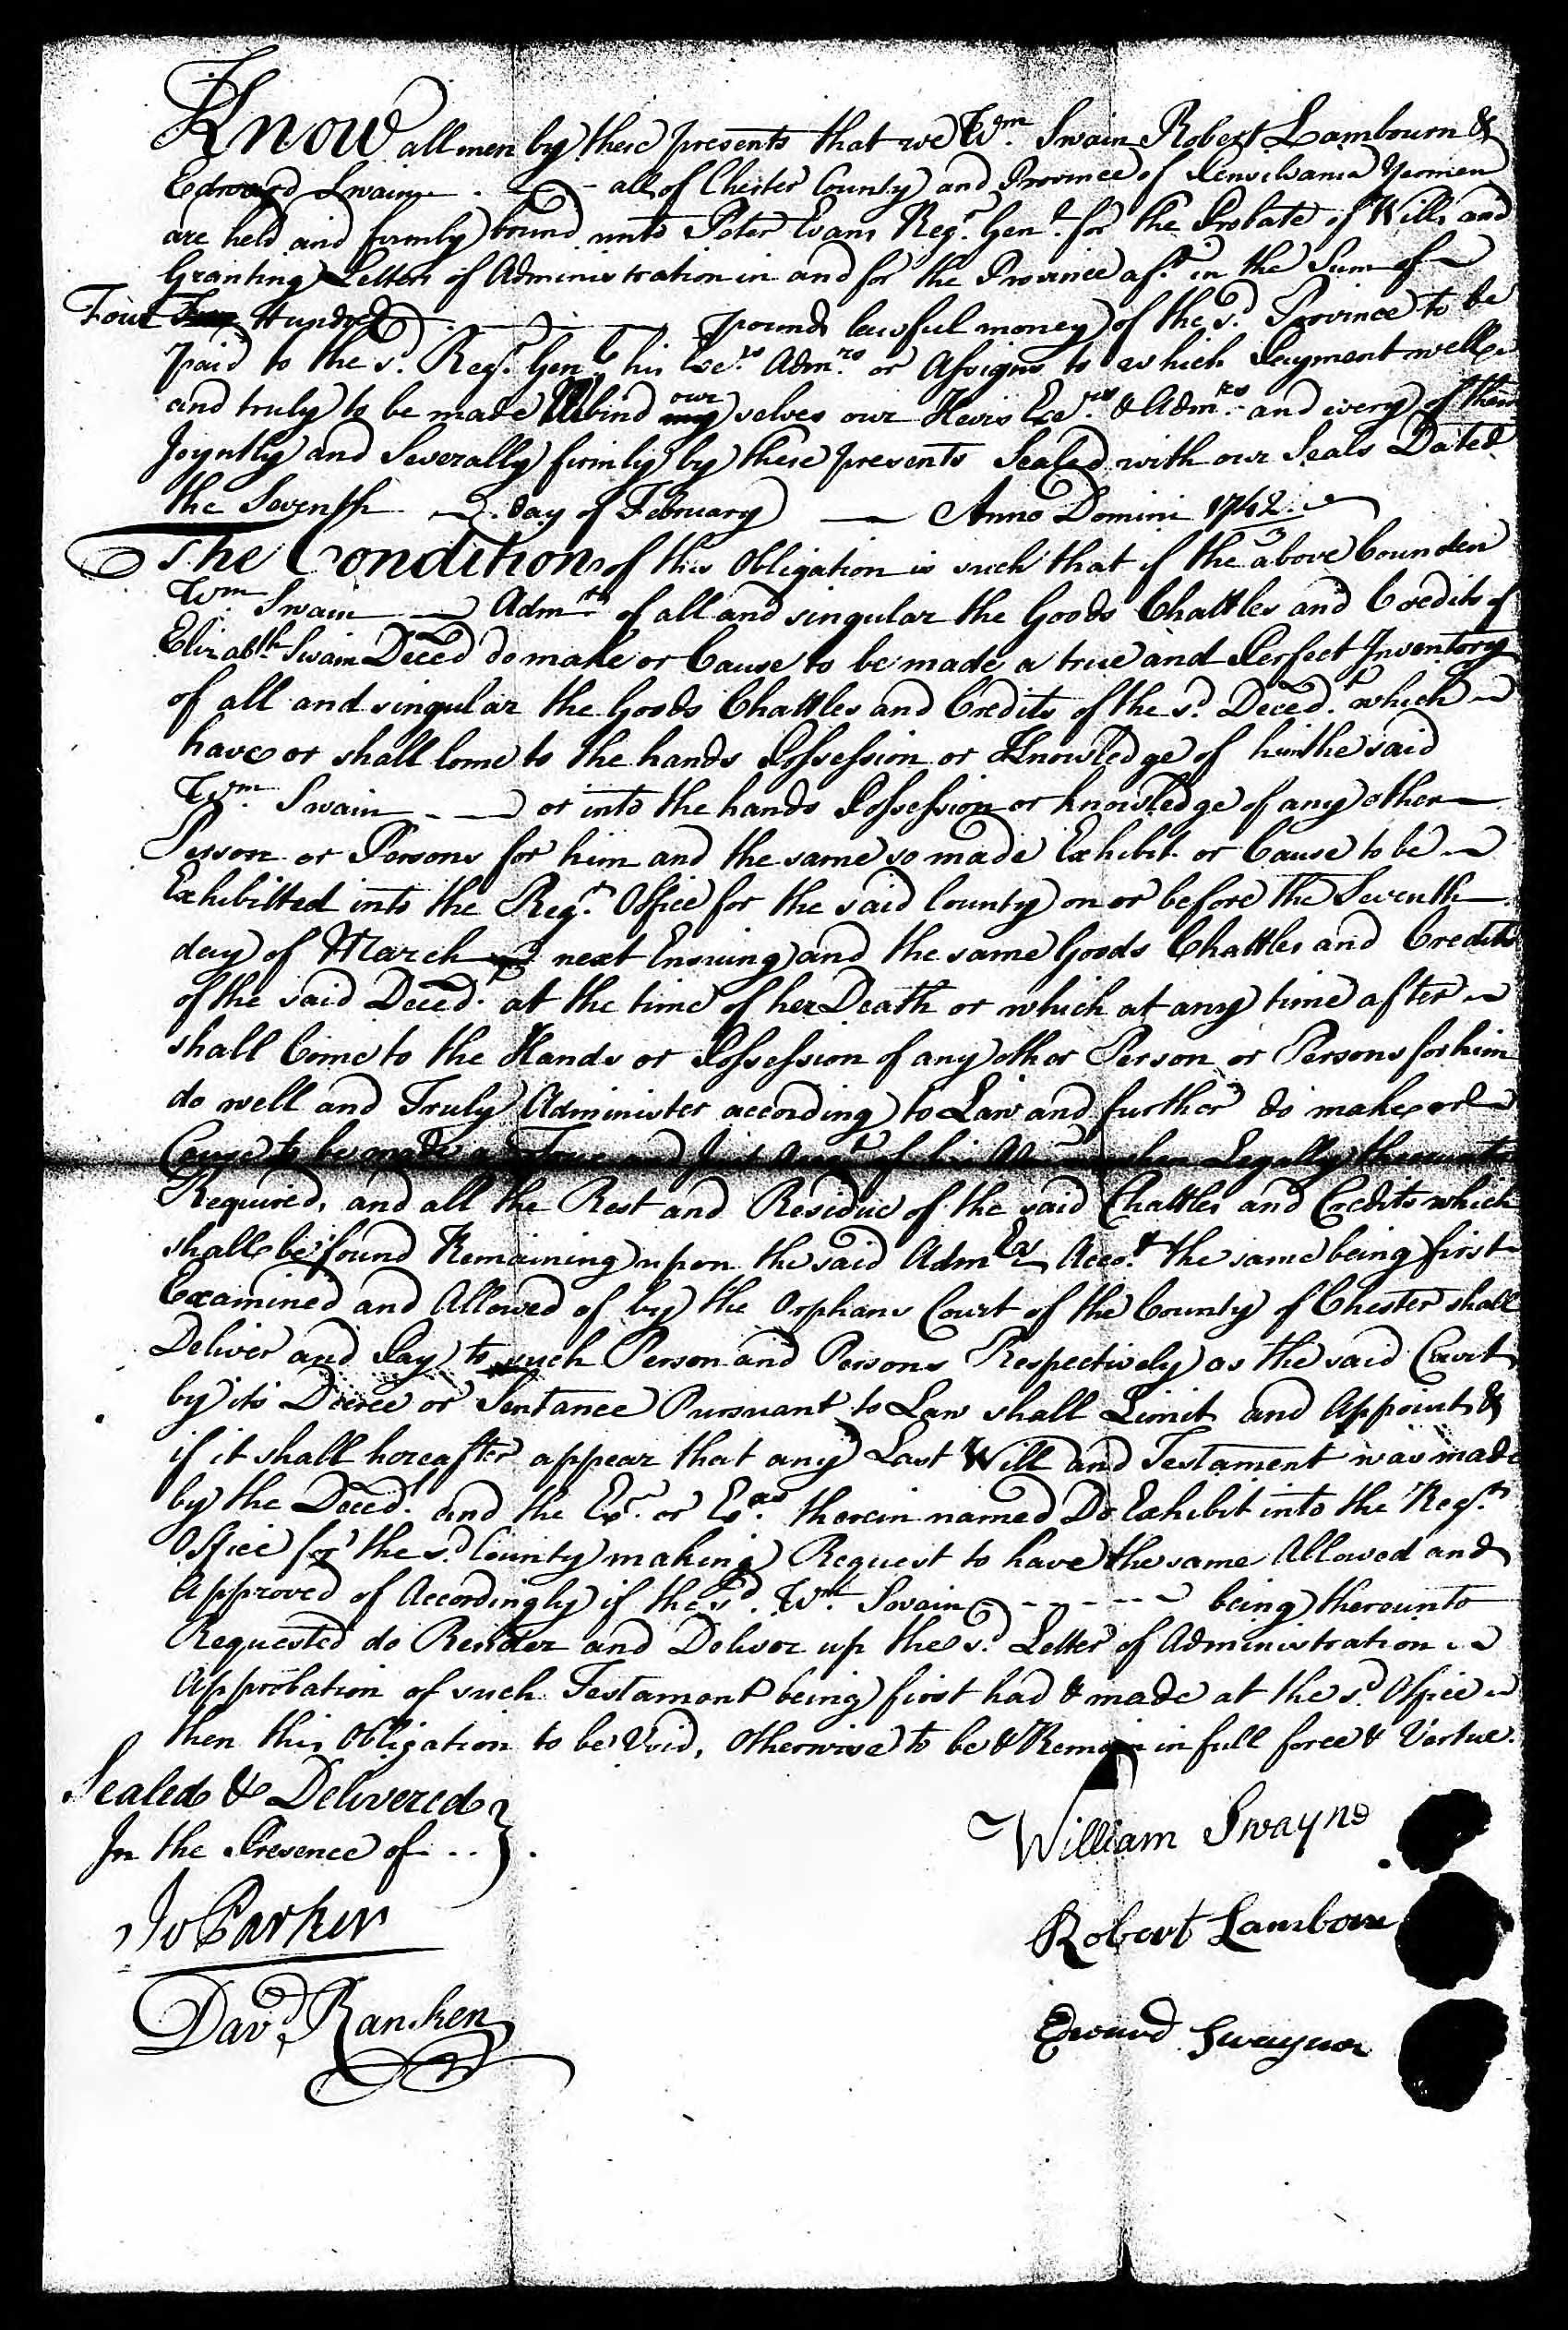 Know all men by these presents that we Wm. Swain Robert Lambourn &
Edward Swain - all of Chester County and Province of Pensilvania Yeomen
are held and firmly bound unto Peter Evans Regr. Genl. for the Probate of Wills and
Granting Letters of Administration in and for the Province afsd. in the Sum of
Four Hundred pounds lawful money of the sd. Province to be
paid to the sd. Regr. Genl. his Exers. Admrs. or Assigns to which Payment well
and truly to be made We bind our selves our Heirs Exers. & Admrs. and every of them
Joyntly and Severally firmly by these presents Sealed with our Seals Dated
the Seventh day of February Anno Domini 1742
The Condition of this Obligation is such that if the above bounden
Wm. Swain Admr. of all and singular the Goods Chattles and Credits of
Elizabth. Swain Deced do make or Cause to be made a true and Perfect Inventory
of all and singular the Goods Chattles and Credits of the sd. Deced. which
have or shall Come to the hands Possession or Knowledge of him the said
Wm. Swain or into the hands Possession or knowledge of any other
Person or Persons for him and the same so made Exhibit or Cause to be
Exhibitted into the Regrs. Office for the said County on or before the Seventh
day of March next Ensuing and the same Goods Chattles and Credits
of the said Deced. at the time of her Death or which at any time after
shall Come to the Hands or Possession of any other Person or Persons for him
do well and Truly Administer according to Law and further do make or
Cause to be made a True and Just Accot. of his when Legally thereunto
Required, and all the Rest and Residue of the said Chattles and Credits which
shall be found Remaining upon the said Admrs Accot. the same being first
Examined and Allowed of by the Orphans Court of the County of Chester shall
Deliver and Pay to such Person and Persons Respectively as the said Court
by its Decree or Sentance Pursuant to Law shall Limit and Appoint &
if it shall hereafter appear that any Last Will and Testament was made
by the Deced. and the Exr. or Exrs. therein named Do Exhibit into the Regrs.
Office for the sd. County making Request to have the same Allowed and
Approved of Accordingly if the sd. Wm. Swain - - - - - being thereunto
Requested do Render and Deliver up the sd. Letter of Administration
Approbation of such Testament being first had & made at the sd. Office
then this Obligation to be Void, Otherwise to be & Remain in full force & Vertue.
Sealed & Delivered
In the Presence of . .
William Swayne
Jo Parker
Robert Lamborn
Davd. Ranken
Edward Swayne